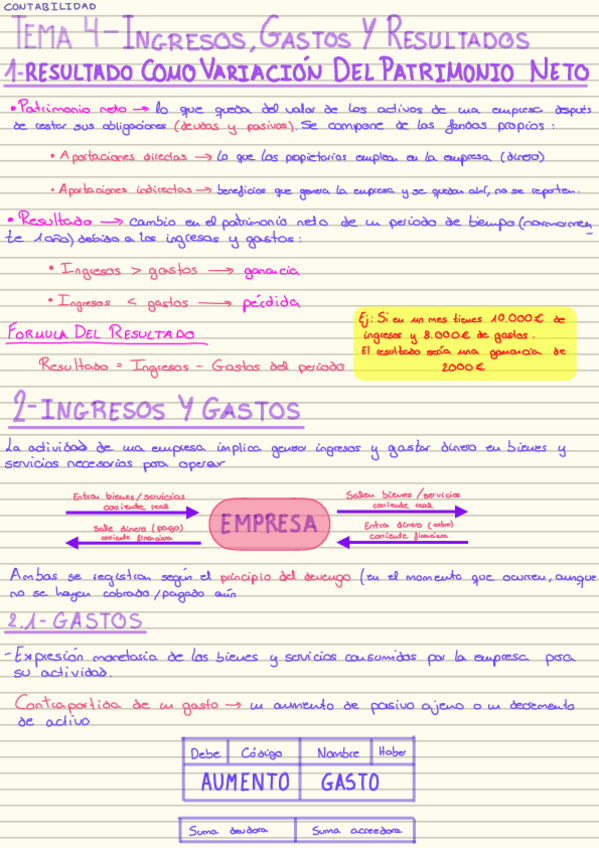 CONTABILIDAD
TEMA 4-INGRESOS, GASTOS Y RESULTADOS
1-RESULTADO COMO VARIACIÓN DEL PATRIMONIO NETO
• Patrimonio neto → lo que queda del valor de los activos de una empresa después
de restar sus obligaciones (deudas y pasivos). Se compone de los fondos propios :
• Aportaciones directas → lo que los propietarios emplean en la empresa (dinero)
• Aportaciones indirectas → beneficios que genera la empresa y se quedan ahí, no se reparten.
• Resultado → cambio en el patrimonio neto de un periodo de tiempo (normalmen_
te 1 año) debido a los ingresos y gastos :
• Ingresos > gastos → ganancia
• Ingresos < gastos → pérdida
FORMULA DEL RESULTADO
Resultado = Ingresos - Gastos del periodo
Ej: Si en un mes tienes 10.000€ de
ingresos y 8.000€ de gastos.
El resultado sería una ganancia de
2000€
2-INGRESOS Y GASTOS
La actividad de una empresa implica generar ingresos y gastar dinero en bienes y
servicios necesarios para operar
Entran bienes/servicios
corriente real
Sale dinero (pago)
corriente financiera
EMPRESA
Salen bienes/servicios
corriente real
Entra dinero (cobro)
corriente financiera
Ambos se registran según el principio del devengo (en el momento que ocurren, aunque
no se hayan cobrado/pagado aún
2.1- GASTOS
-Expresión monetaria de los bienes y servicios consumidos por la empresa para
su actividad.
Contrapartida de un gasto → un aumento de pasivo ajeno o un decremento
de activo
Debe Código Nombre Haber
AUMENTO GASTO
Suma deudora Suma acreedora